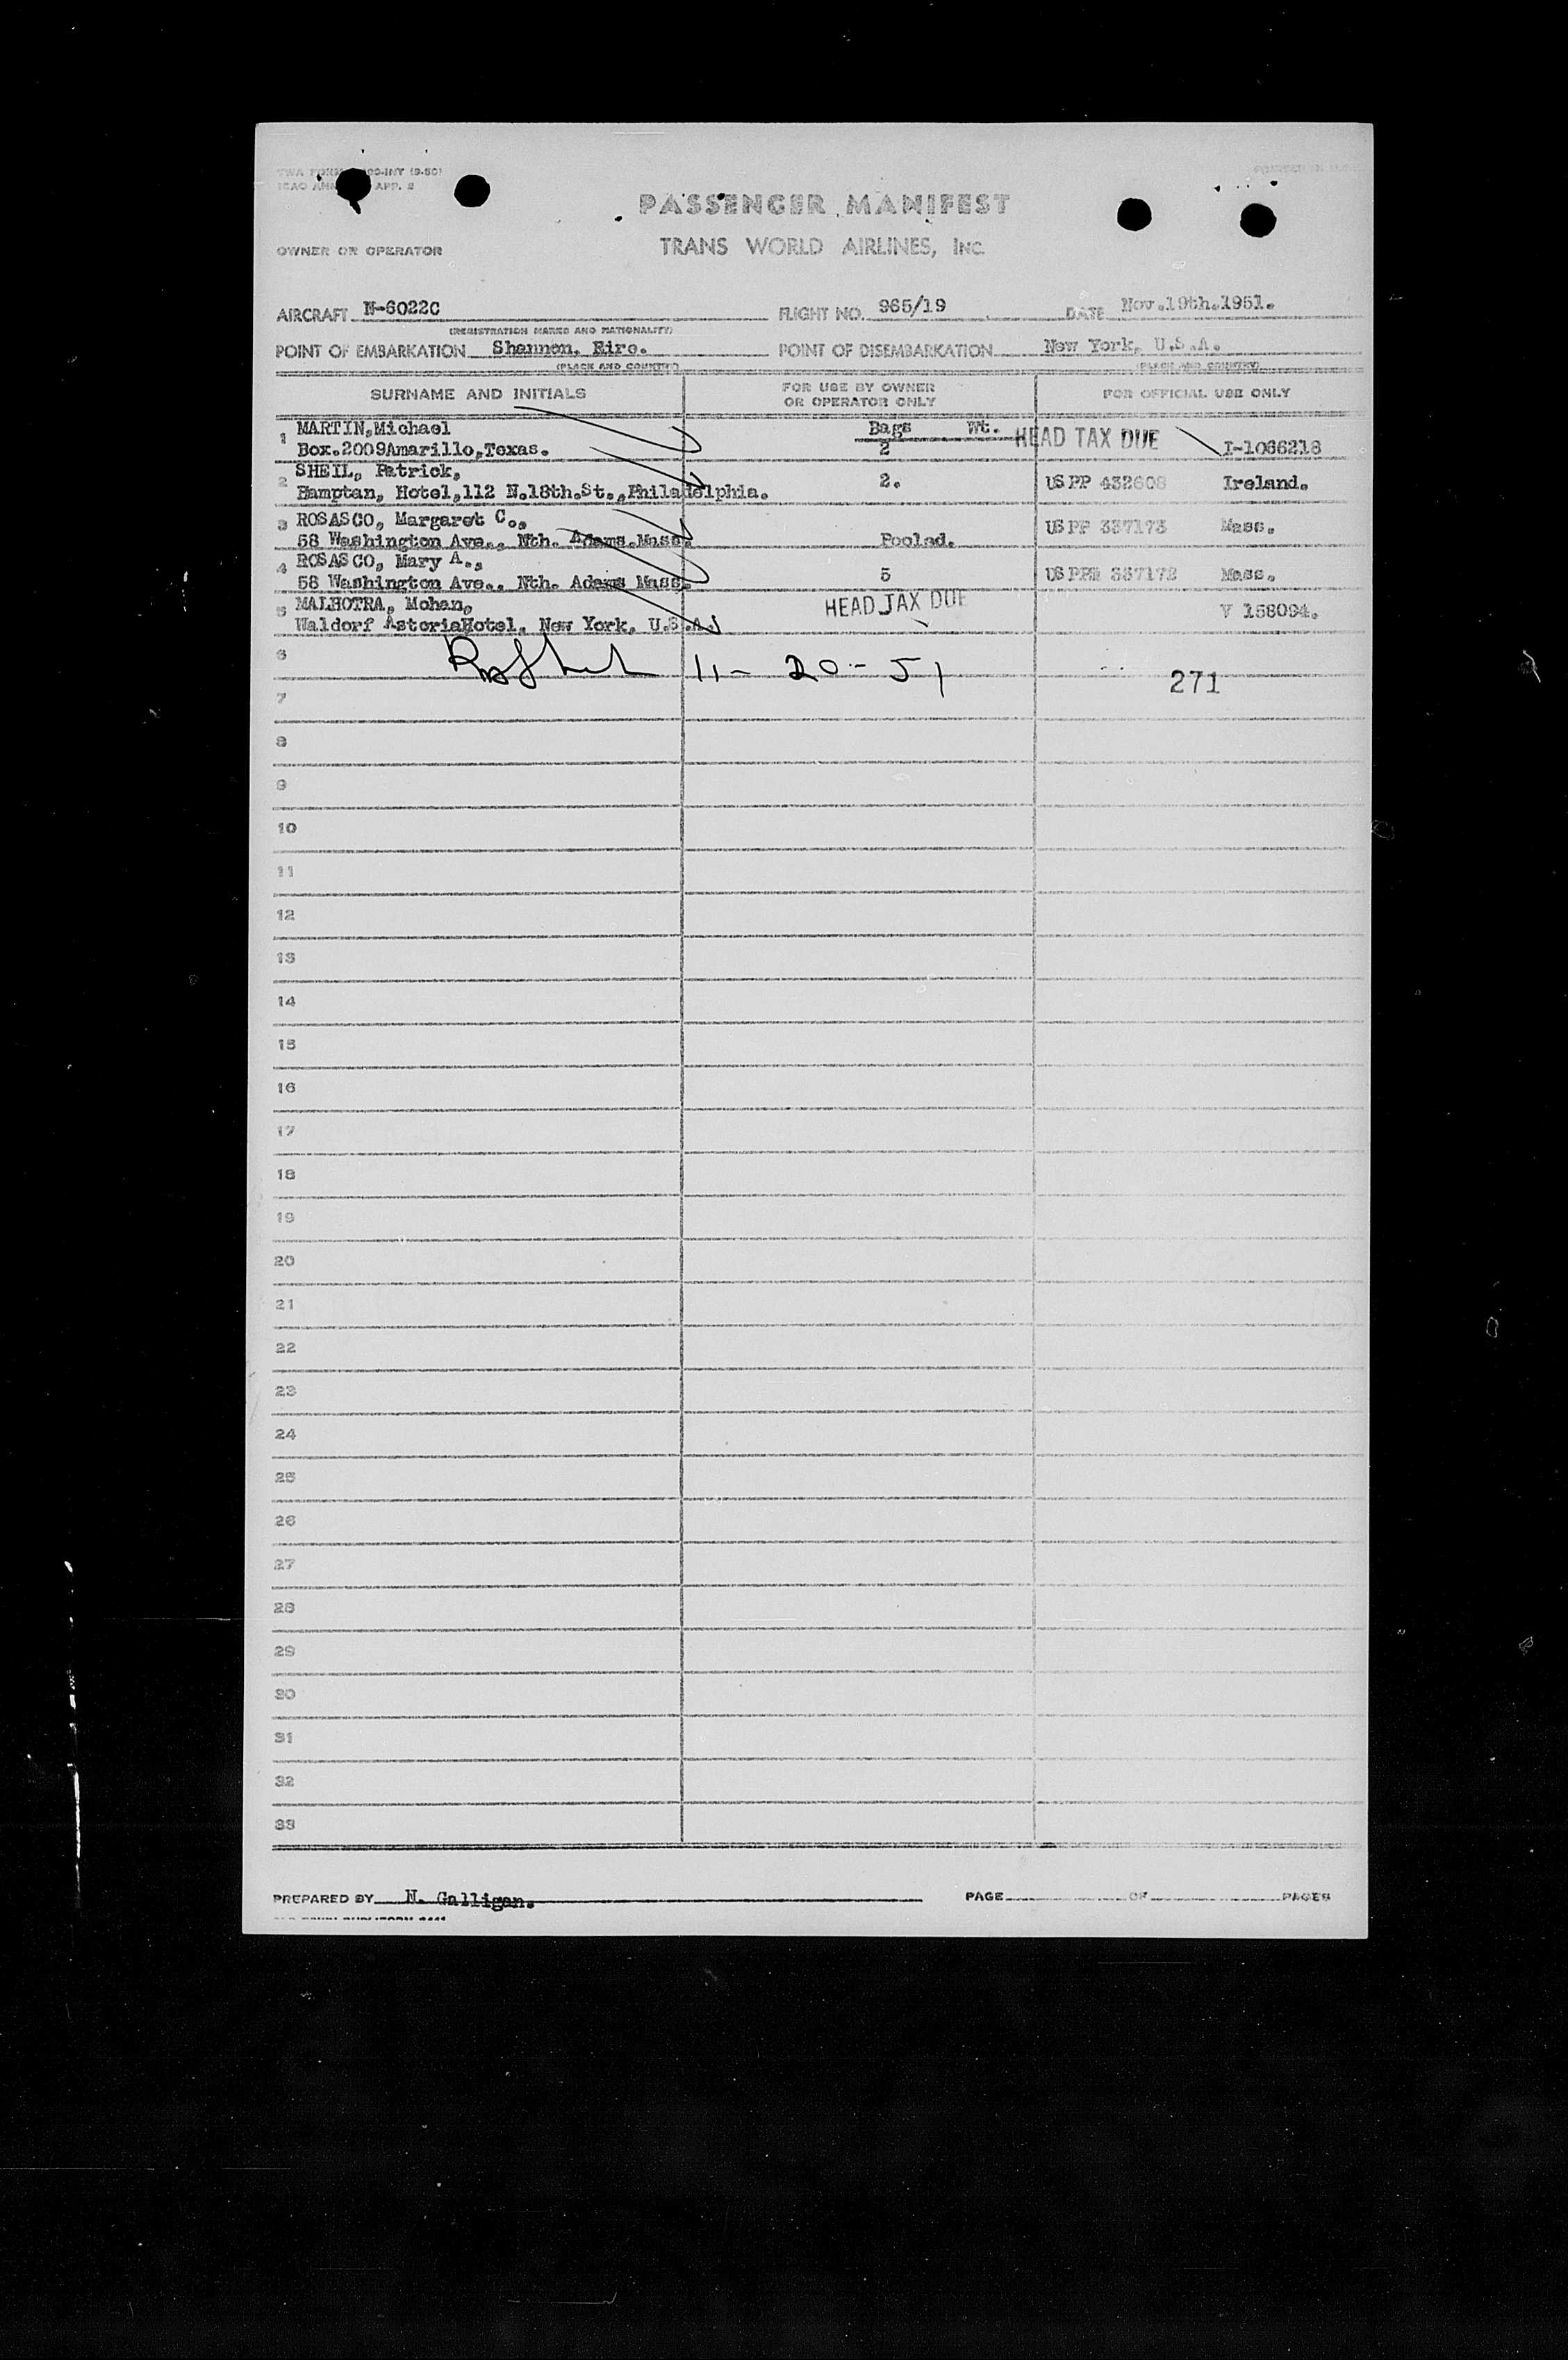 TWA FORM
ICAO ANN APP. 2
PASSENGER MANIFEST
OWNER OR OPERATOR TRANS WORLD AIRLINES, INC.
AIRCRAFT N-6022C FLIGHT NO. 965/19 DATE Nov.19th.1951.
(REGISTRATION MARKS AND NATIONALITY)
POINT OF EMBARKATION Shannon, Eire. POINT OF DISEMBARKATION New York, U.S.A.
(PLACE AND COUNTRY) (PLACE AND COUNTRY)
SURNAME AND INITIALS FOR USE BY OWNER OR OPERATOR ONLY FOR OFFICIAL USE ONLY
1 MARTIN,Michael Bags Wt. HEAD TAX DUE
Box.2009Amarillo,Texas. 2 I-1066218
2 SHEIL, Patrick, 2. US PP 432608 Ireland.
Hamptan, Hotel,112 N.18th.St.,Philadelphia.
3 ROSASCO, Margaret C., US PP 337173 Mass.
58 Washington Ave., Nth. Adams.Mass. Poolad.
4 ROSASCO, Mary A., 5 US PP 337172 Mass.
58 Washington Ave., Nth. Adams Mass.
5 MALHOTRA, Mohan, HEAD TAX DUE V 158094.
Waldorf AstoriaHotel, New York, U.S.A.
6 11-20-51
7 271
8
9
10
11
12
13
14
15
16
17
18
19
20
21
22
23
24
25
26
27
28
29
30
31
32
33
PREPARED BY N. Galligan. PAGE OF PAGES